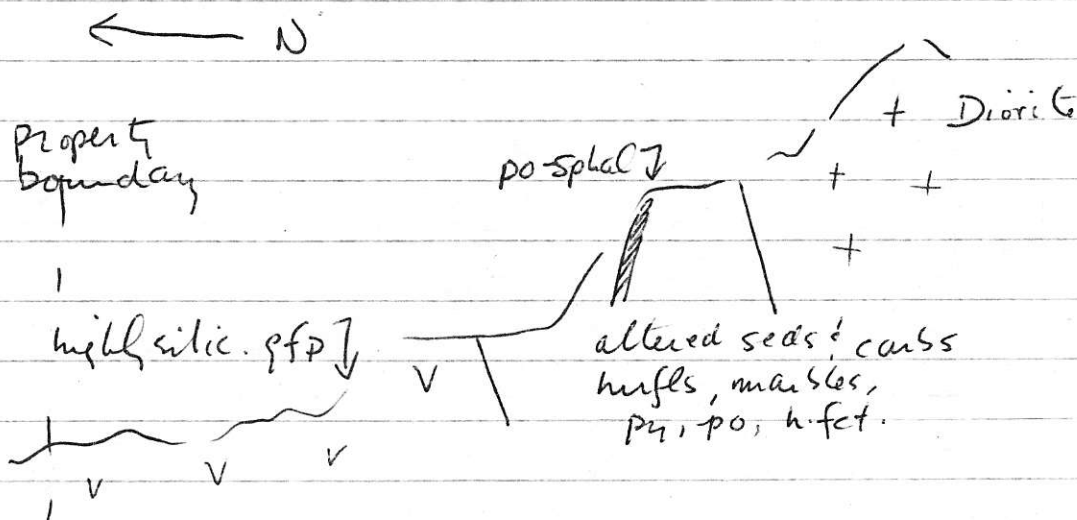 N
+ Diorite
property
boundary
po-sphal
+ +
+
highly silic. qfp
V
altered seds & carbs
hnfls, marbles,
py, po, h.fct.
V V V